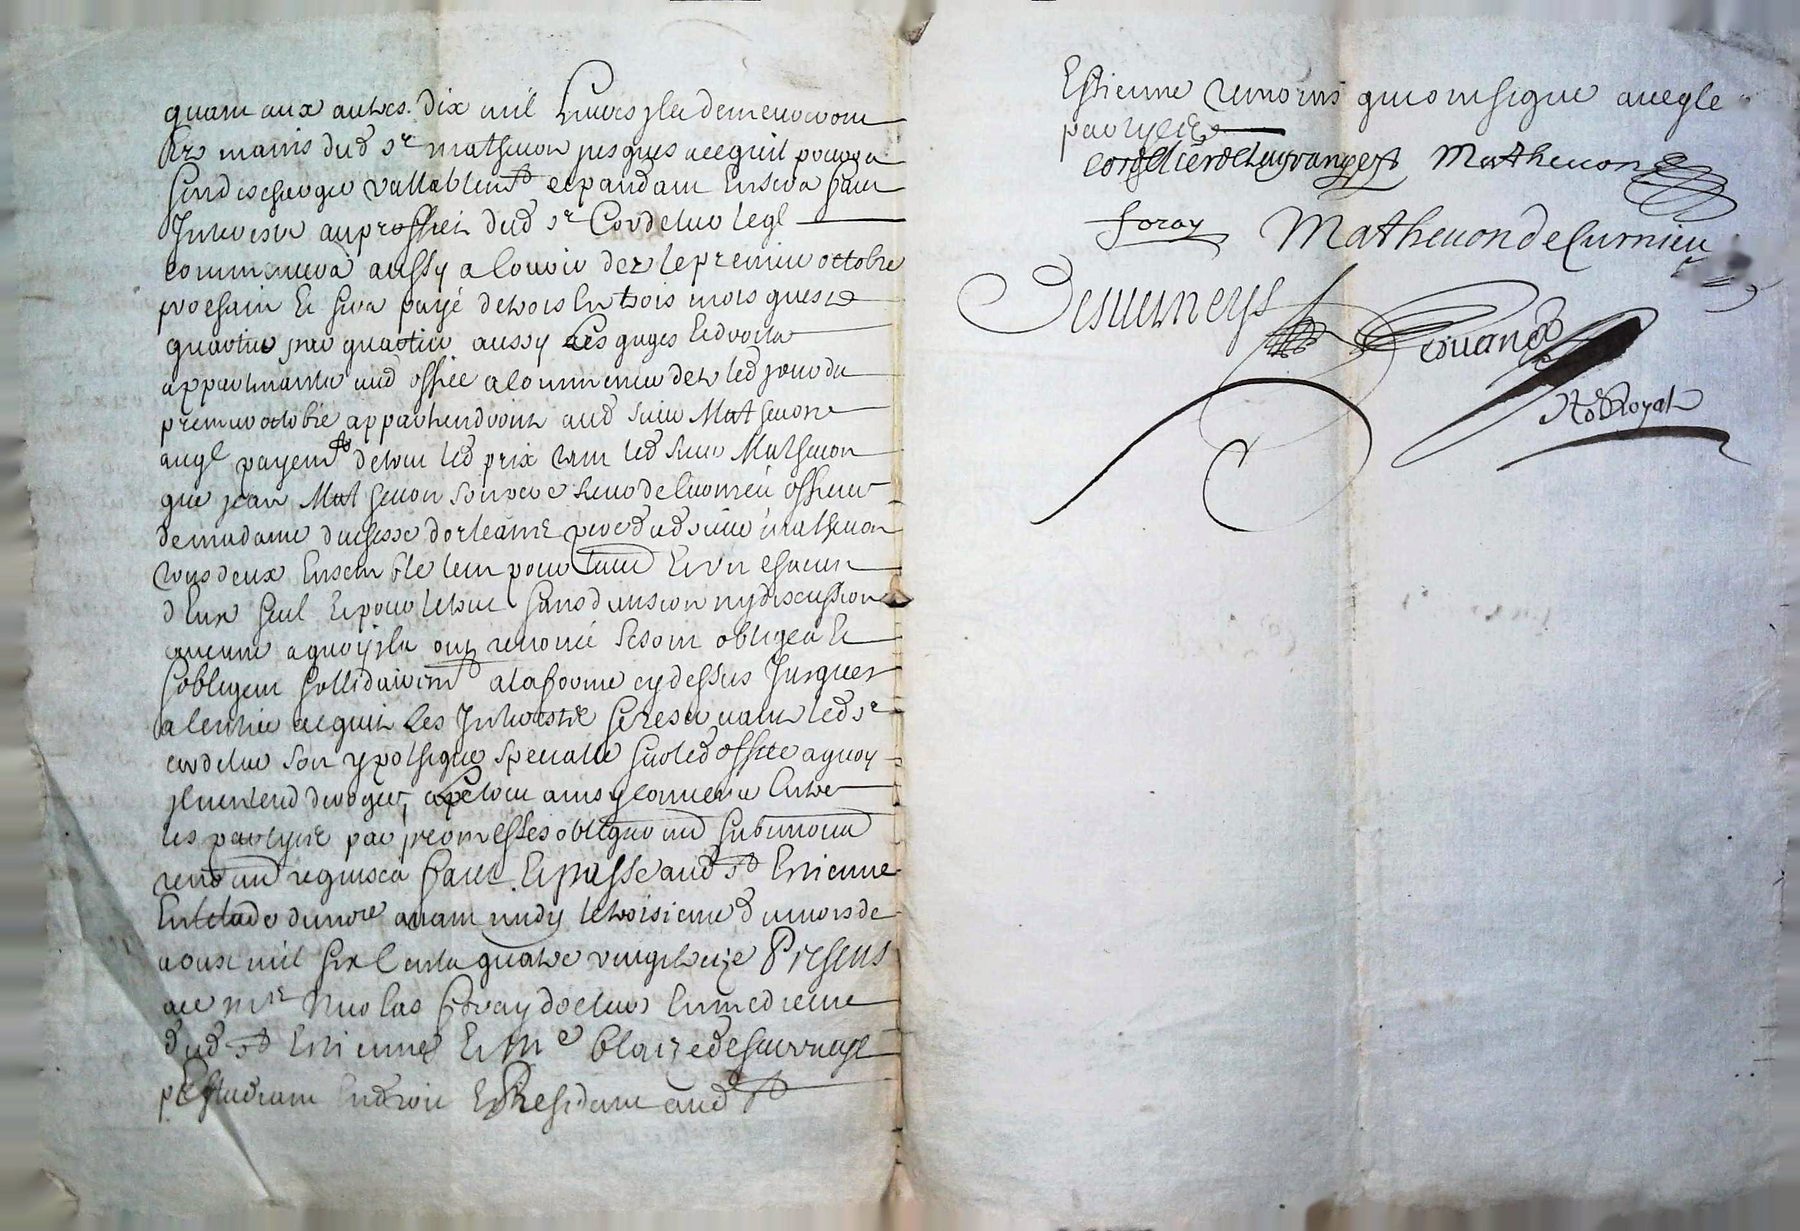 quant aux autres dix mil livres ils demeureront
ez mains dud sr mathevon jusques acequil pourra
sendescharger vallablemt cependant Ensera
Interestz auproffict dud sr Cordelier leql
commencera aussy a avoir dez lepremier octobre
prochain Et sera payé detrois Entrois mois
quartier par quartier aussy Les gages Et droits
appartenants aud office a commencer dez led jour du
premier octobre appartiendront aud sieur Mathevon
auql payemt detout led prix tant led sieur Mathevon
que jean Mathevon son sieur de officier
demadame duchesse dorleans pere dud sieur mathevon
tous deux Ensemble lun pour lautre Et un chacun
dEux seul Et pour letout sans division ny discussion
aucune aquoy ils ont renoncé sesont obligés Et
sobligent sollidairemt alaforme cydessus Jusques
a lentier acquit Les Interestz sereservant led sr
cordelier son ypotheque specialle surled office aquoy
ilnentend deroger, letout ainsy convenu Entre
les partyes par promesses obligaon
renon requises faict Et passé aud st Estienne
Enlestude dunore avant midy letroisieme dumois de
aoust mil six Cents quatre vingtreize Presens
a ce mre Nicolas foray docteur Enmedecine
dud st Estienne Et Me Blaize desverneys
pr Estudiant Endroit Et Residant aud st
Estienne temoins quiontsigné avecqle
partyes
cordelierdelagrangest Mathevon
foray Mathevondecurnieu
Desverneys
Nore Royal